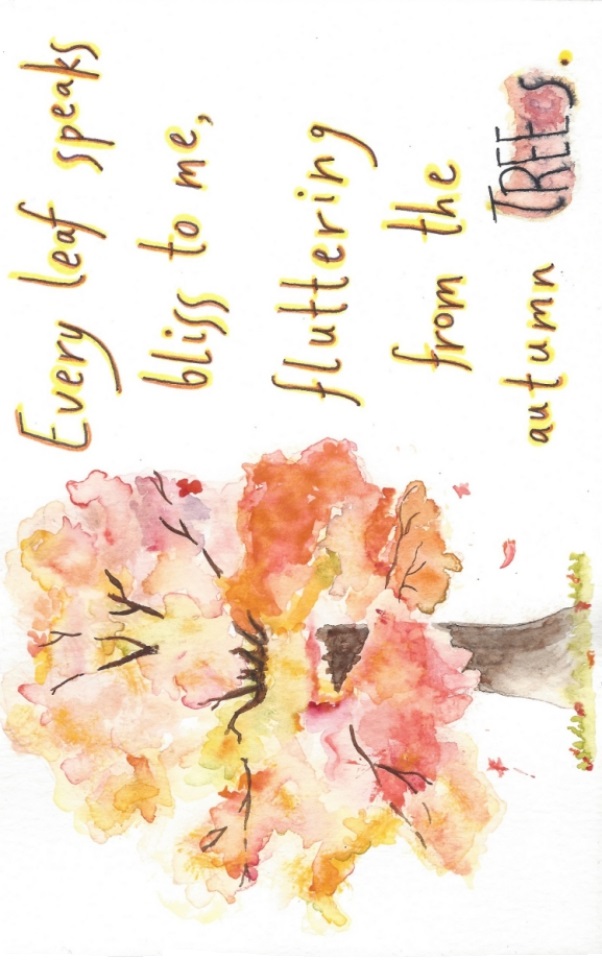 Every leaf speaks
bliss to me,
fluttering
from the
autumn TREES.